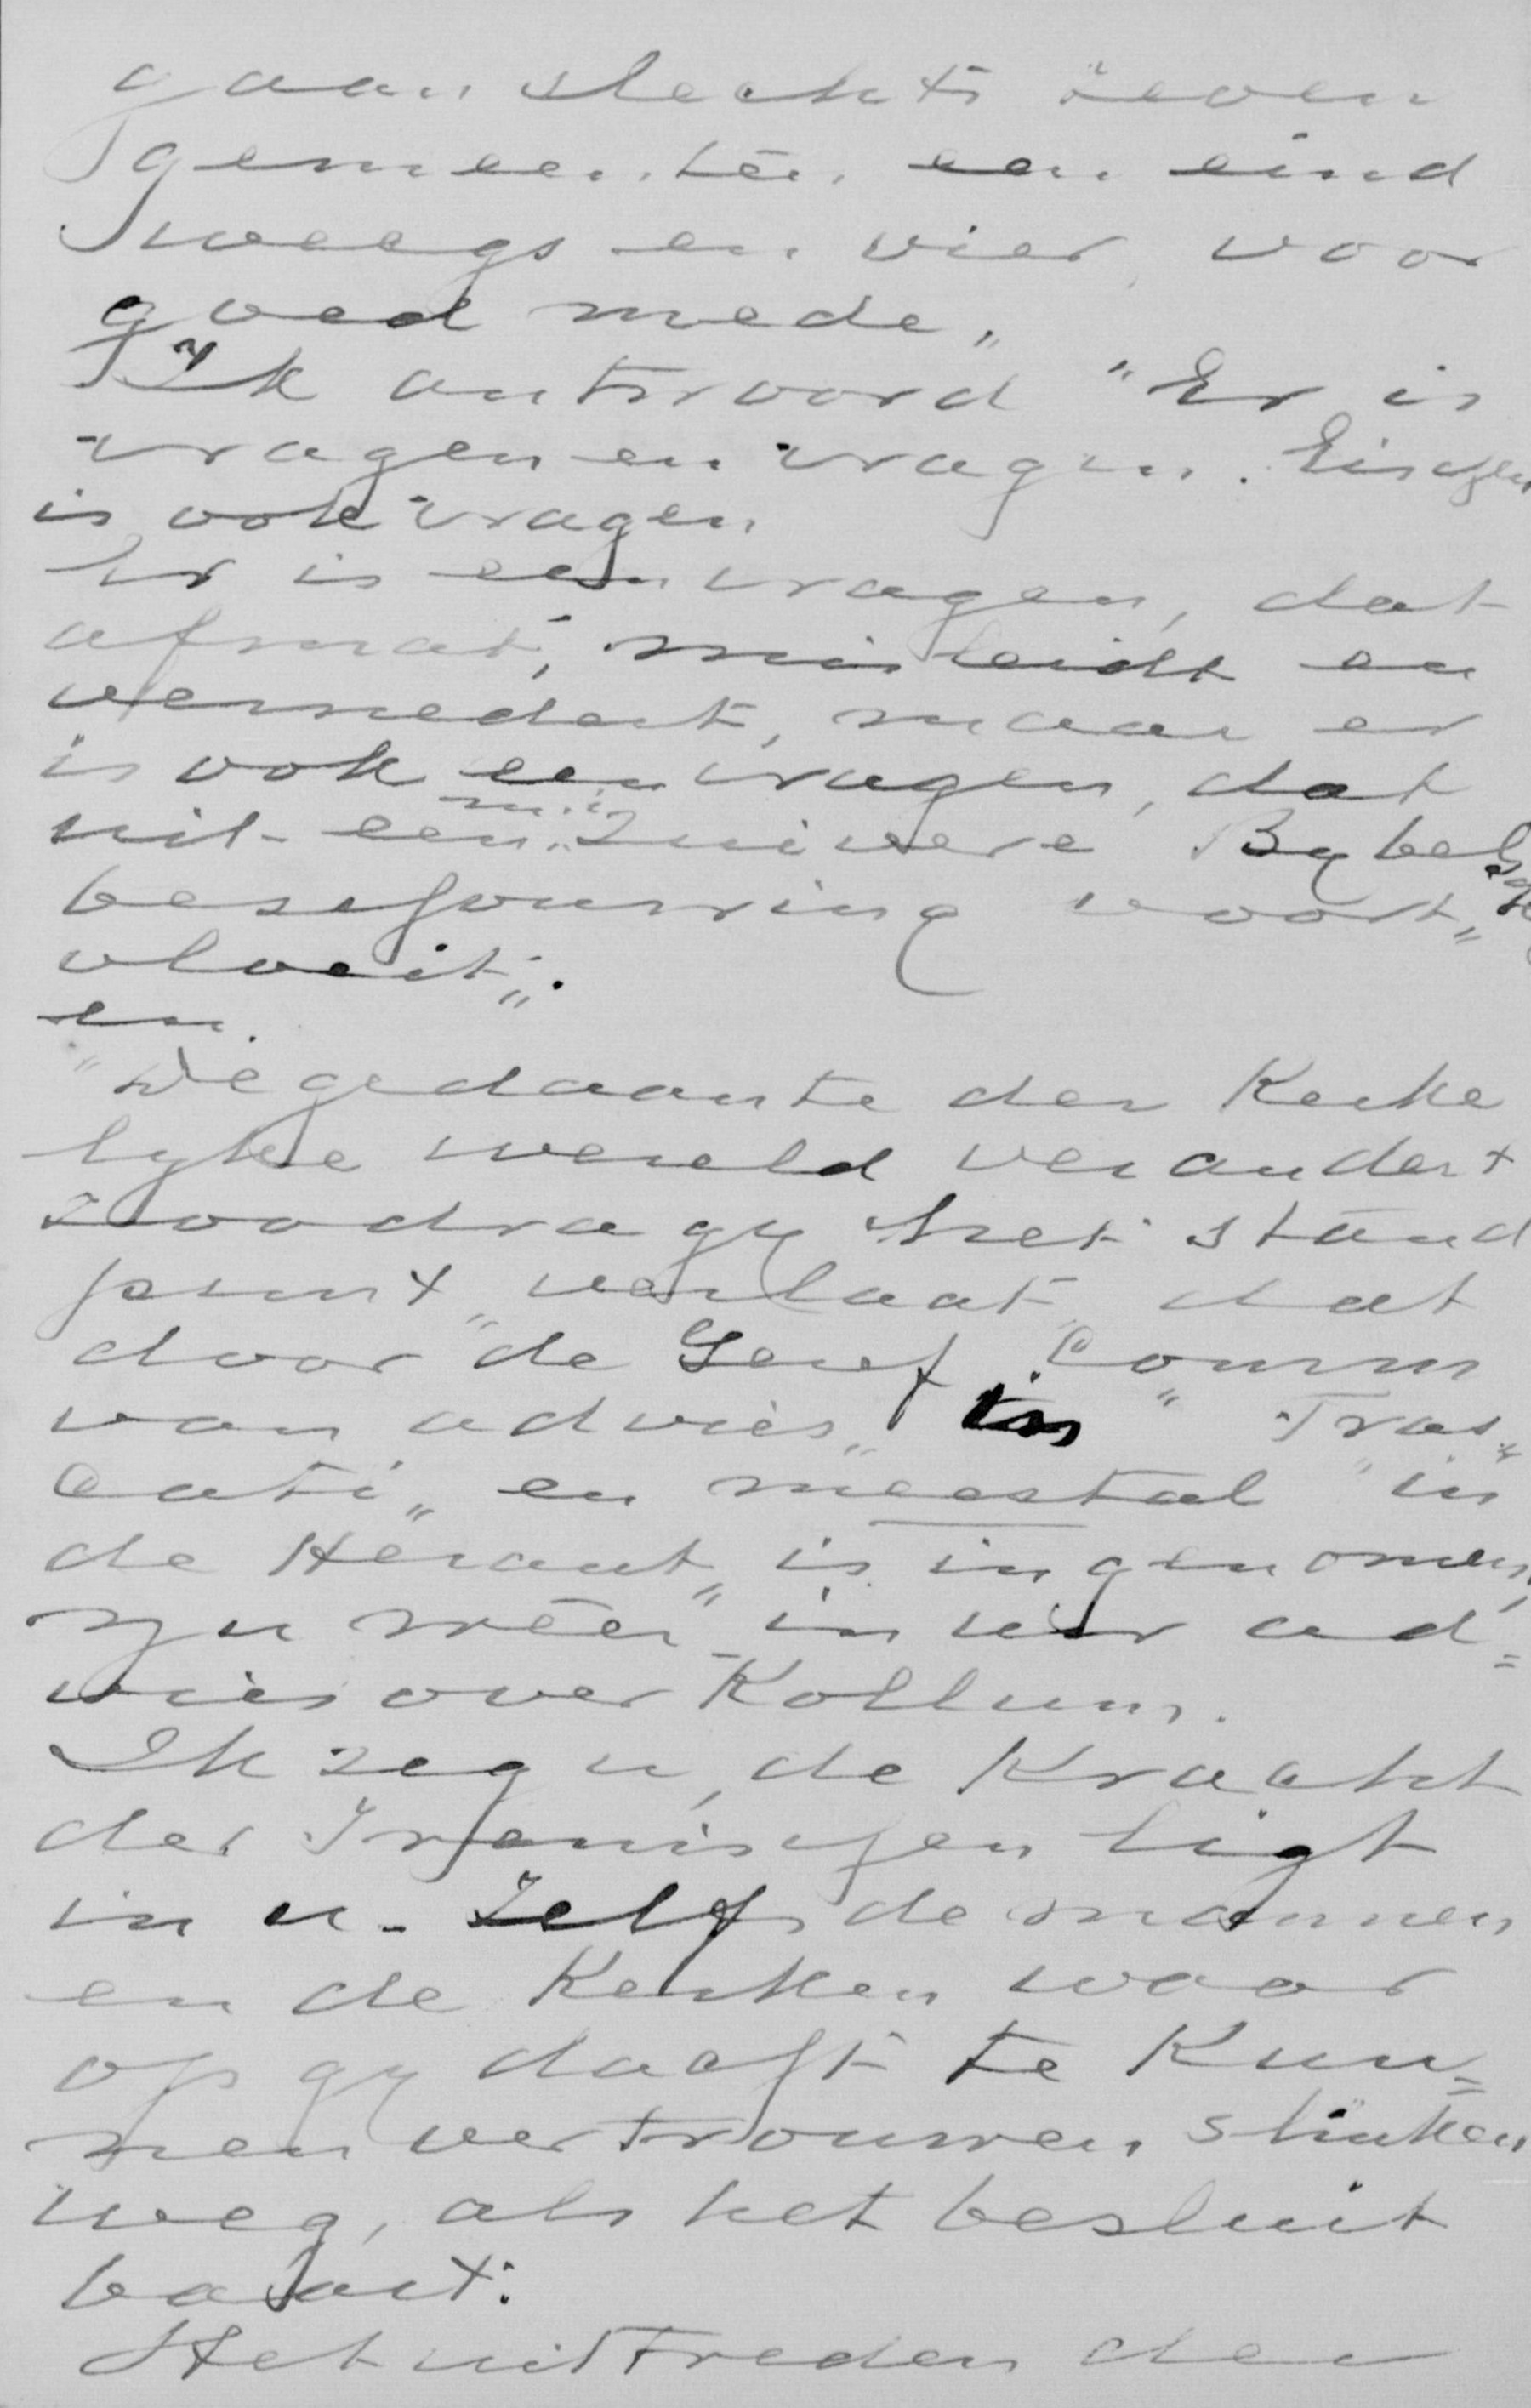 gaan slechts zeven
gemeenten een eind
weegs en vier voor
goed mede„
Ik antwoord "Er is
vragen en vragen. Eischen
is ook vragen
Er is een vragen, dat
afmat, misleidt en
vernedert, maar er
is ook een vragen, dat
uit een min zuivere Bybelsche
beschouwing voort„
vloeit„.
en
"De gedaante der Kerke
lyke wereld verandert
zoodra gy het stand
punt verlaat dat
door "de Geref. Comm
van advies„ "Trac„
tati„ en meestal "in
de Heraut„ is ingenomen,
zyn wéer in uw ad=
vies over Kollum.
Ik zeg u, de Kracht
der Irenischen ligt
in u. Zelfs de mannen
en de Kerken waar
op gy dacht te Kun=
nen vertrouwen slinken
weg, als het besluit
baart:
Het uittreden der